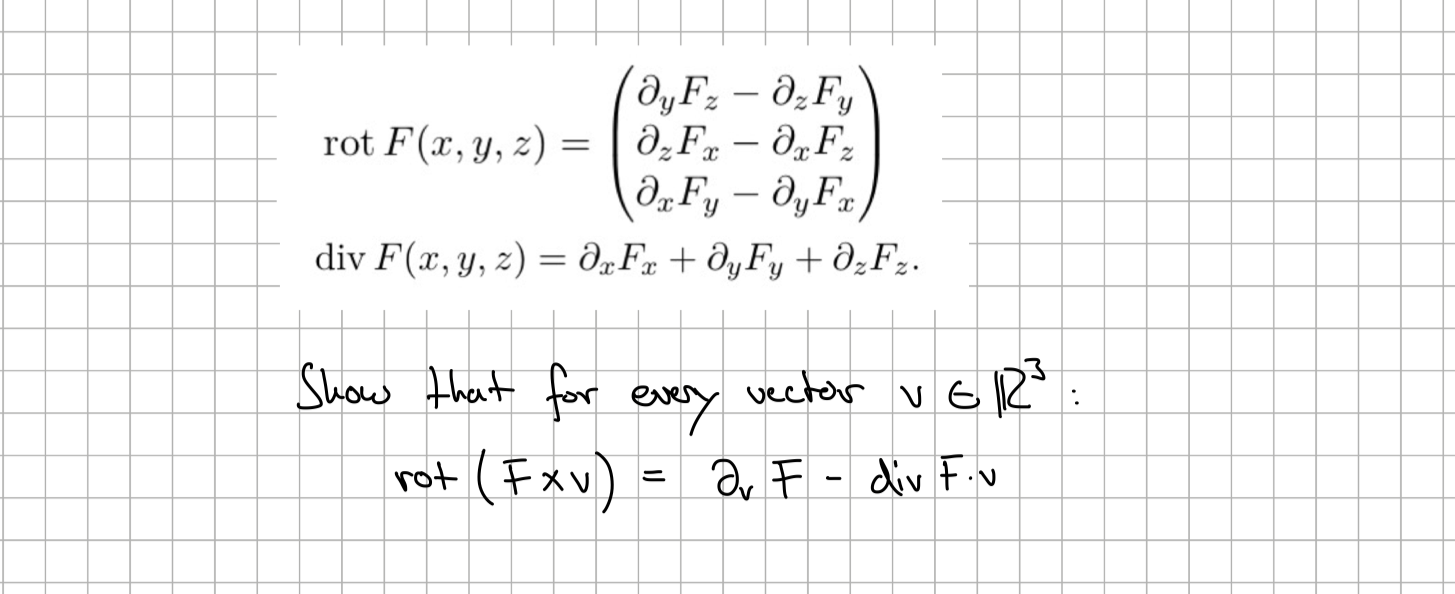 rot F(x, y, z) = (∂_yF_z − ∂_zF_y
∂_zF_x − ∂_xF_z
∂_xF_y − ∂_yF_x)
div F(x, y, z) = ∂_xF_x + ∂_yF_y + ∂_zF_z.
Show that for every vector v ∈ ℝ³ :
rot (F×v) = ∂_v F − div F·v